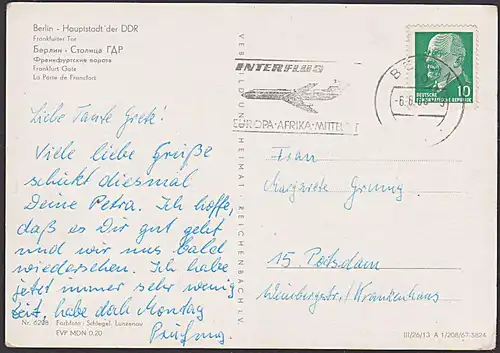 Berlin - Hauptstadt der DDR
Frankfurter Tor
Берлин - Столица ГДР
Франкфуртские ворота
Frankfurt Gate
La Porte de Francfort
Liebe Tante Grete!
Viele liebe Grüße
schickt diesmal
Deine Petra. Ich hoffe,
daß es Dir gut geht
und wir uns bald
wiedersehen. Ich habe
jetzt immer sehr wenig
Zeit, habe doch Montag
Prüfung.
Nr. 6208 Farbfoto: Schlegel, Lunzenau
EVP MDN 0,20
VEB BILD UND HEIMAT REICHENBACH I. V.
INTERFLUG
EUROPA·AFRIKA·MITTEL
BE
-6.6.
DEUTSCHE
DEMOKRATISCHE REPUBLIK
10
Frau
Margarete
15 Potsdam
Weinbergstr./Krankenhaus
III/26/13 A 1/208/67-5824